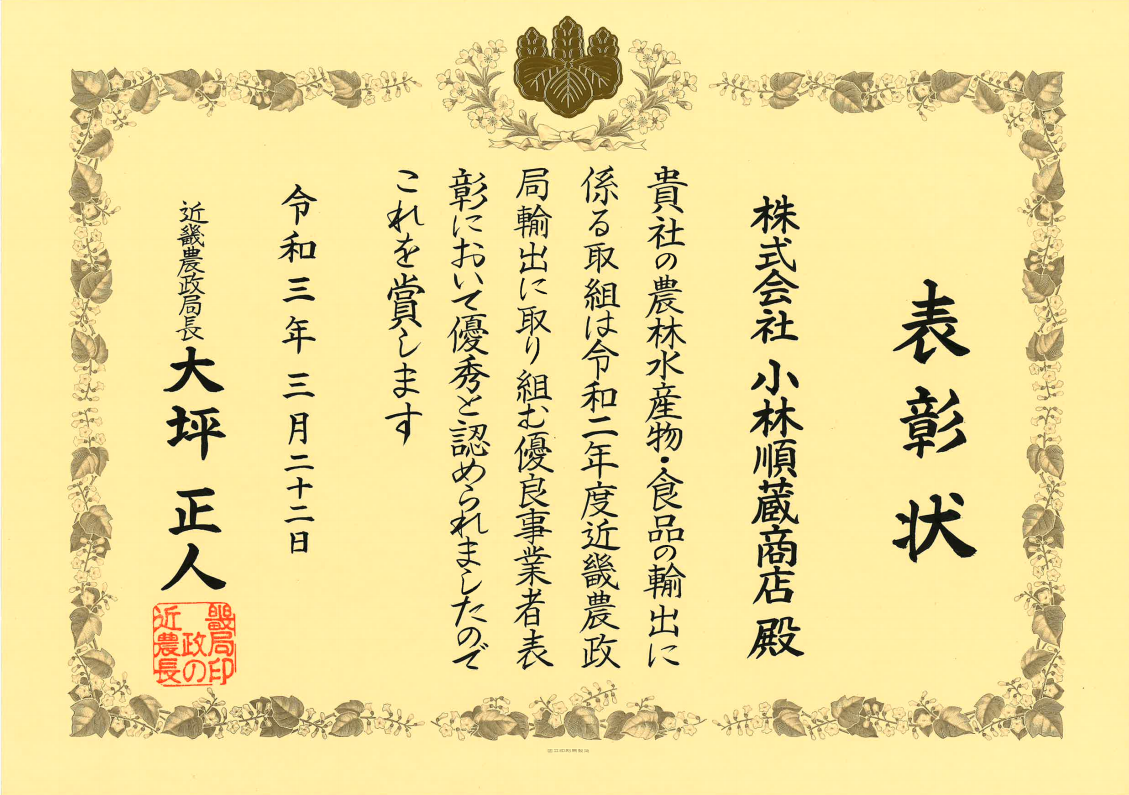 表彰状
株式会社 小林順蔵商店 殿
貴社の農林水産物・食品の輸出に
係る取組は令和二年度近畿農政
局輸出に取り組む優良事業者表
彰において優秀と認められましたので
これを賞します
令和三年三月二十二日
近畿農政局長 大坪正人
畿局印
政の
近農長